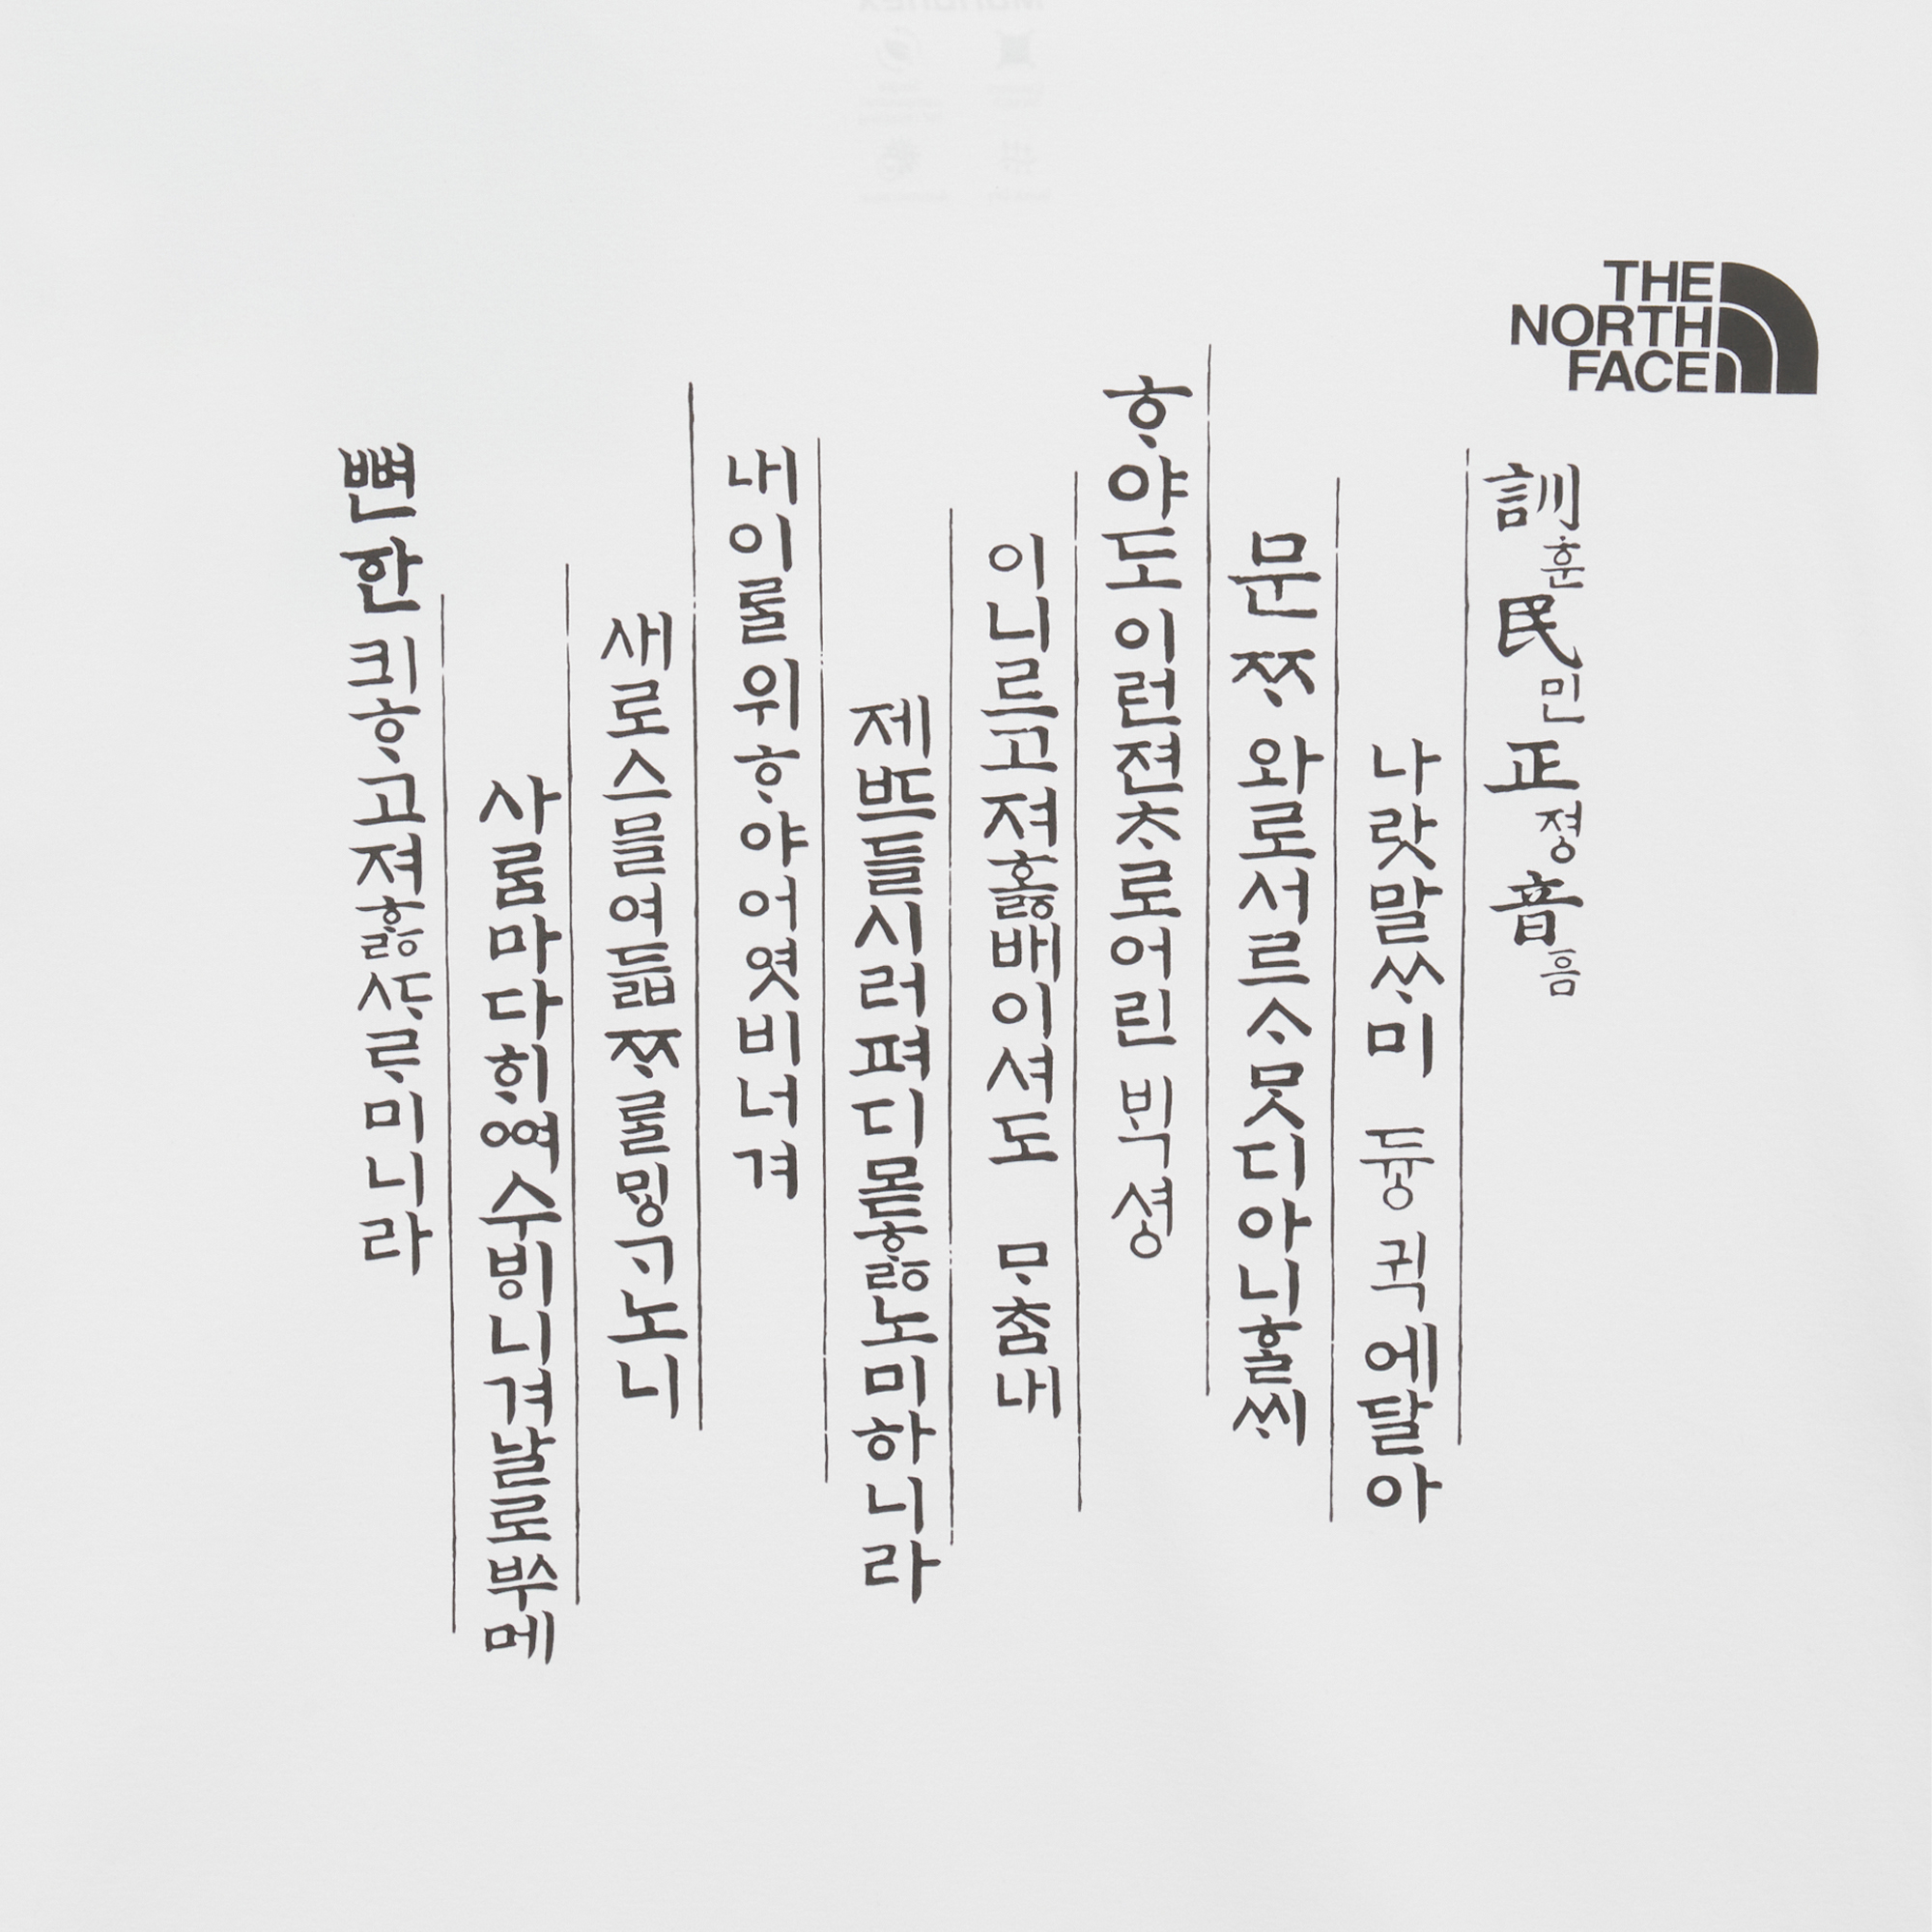 THE
NORTH
FACE
訓훈民민正졍音ᅙᅳᆷ
나랏말ᄊᆞ미 듀ᇰ귁에달아
문ᄍᆞ와로서르ᄉᆞᄆᆞᆺ디아니ᄒᆞᆯᄊᆡ
ᄒᆞ야도이런젼ᄎᆞ로어린ᄇᆡᆨ셔ᇰ
이니르고져호ᇙ배이셔도 ᄆᆞᄎᆞᆷ내
제ᄠᅳ들시러펴디몯ᄒᆞᇙ노미하니라
내이ᄅᆞᆯ위ᄒᆞ야어엿비너겨
새로스믈여듧ᄍᆞᄅᆞᆯᄆᆡᇰᄀᆞ노니
사ᄅᆞᆷ마다ᄒᆡᅇᅧ수ᄫᅵ니겨날로ᄡᅮ메
뼌한킈ᄒᆞ고져ᄒᆞᇙᄯᆞᄅᆞ미니라